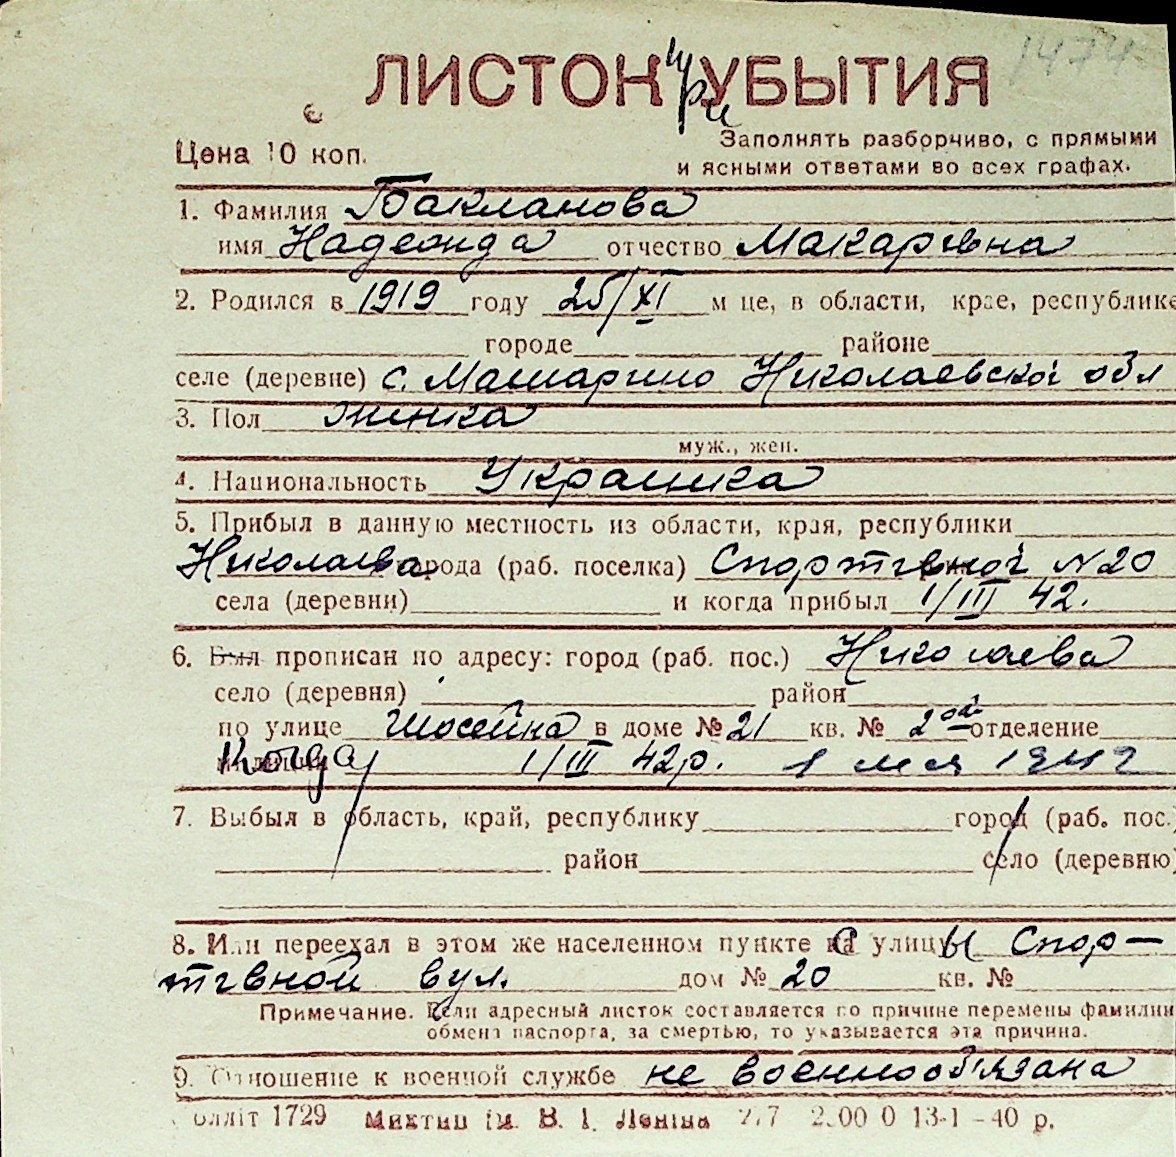 1474
ЛИСТОК при УБЫТИЯ
Цена 10 коп.
Заполнять разборчиво, с прямыми
и ясными ответами во всех графах.
1. Фамилия Бакланова
имя Надежда отчество Макаревна
2. Родился в 1919 году 25/XI м це, в области, крае, республике
городе районе
селе (деревне) с. Машарино Николаевской обл
3. Пол жинка
муж., жен.
4. Национальность Украинка
5. Прибыл в данную местность из области, края, республики
Николаева города (раб. поселка) Спортивной № 20
села (деревни) и когда прибыл 1/III 42.
6. Был прописан по адресу: город (раб. пос.) Николаева
село (деревня) район
по улице Шосейна в доме № 21 кв. № 2ой отделение
Когда 1/III 42р. 1 мая 1942
7. Выбыл в область, край, республику город (раб. пос.
район село (деревню)
8. Или переехал в этом же населенном пункте с улицы Спор-
тивной вул. дом № 20 кв. №
Примечание. Если адресный листок составляется по причине перемены фамилии
обмена паспорта, за смертью, то указывается эта причина.
9. Отношение к военной службе не военнообязана
олліт 1729 Миктип ім. В. І. Леніна 2.00 0 13-1-40 р.